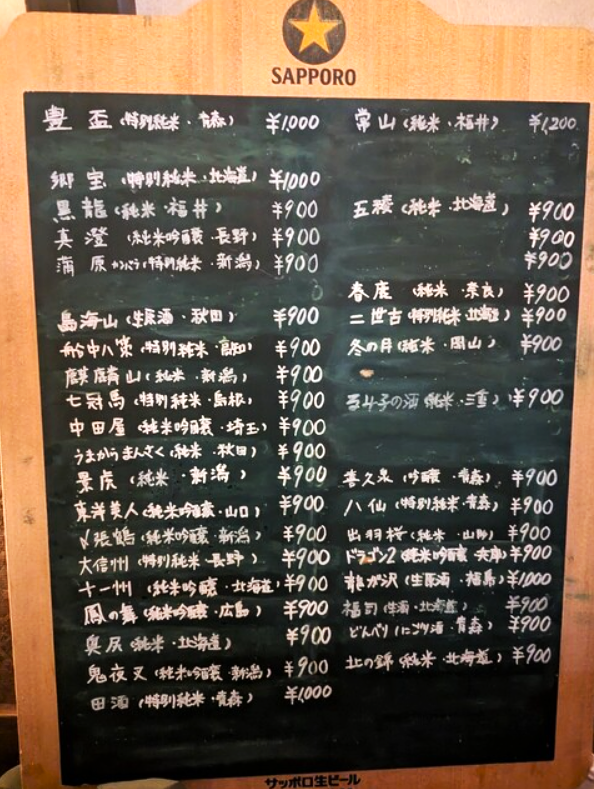 SAPPORO
豊盃(特別純米・青森) ¥1,000
郷宝(特別純米・北海道) ¥1,000
黒龍(純米・福井) ¥900
真澄(純米吟醸・長野) ¥900
蒲原カンバラ(特別純米・新潟) ¥900
鳥海山(生原酒・秋田) ¥900
船中八策(特別純米・高知) ¥900
麒麟山(純米・新潟) ¥900
七冠馬(特別純米・島根) ¥900
中田屋(純米吟醸・埼玉) ¥900
うまからまんさく(純米・秋田) ¥900
景虎(純米・新潟) ¥900
東洋美人(純米吟醸・山口) ¥900
〆張鶴(純米吟醸・新潟) ¥900
大信州(特別純米・長野) ¥900
十一州(純米吟醸・北海道) ¥900
鳳の舞(純米吟醸・広島) ¥900
奥尻(純米・北海道) ¥900
鬼夜叉(純米吟醸・新潟) ¥900
田酒(特別純米・青森) ¥1,000
常山(純米・福井) ¥1,200
五稜(純米・北海道) ¥900
¥900
¥900
春鹿(純米・奈良) ¥900
二世古(特別純米・北海道) ¥900
冬の月(純米・岡山) ¥900
るみ子の酒(純米・三重) ¥900
喜久泉(吟醸・青森) ¥900
八仙(特別純米・青森) ¥900
出羽桜(純米・山形) ¥900
ドラゴン2(純米吟醸・兵庫) ¥900
ヶ沢(生原酒・福島) ¥1,000
福司(生酒・北海道) ¥900
どんべり(にごり酒・青森) ¥900
北の錦(純米・北海道) ¥900
サッポロ生ビール